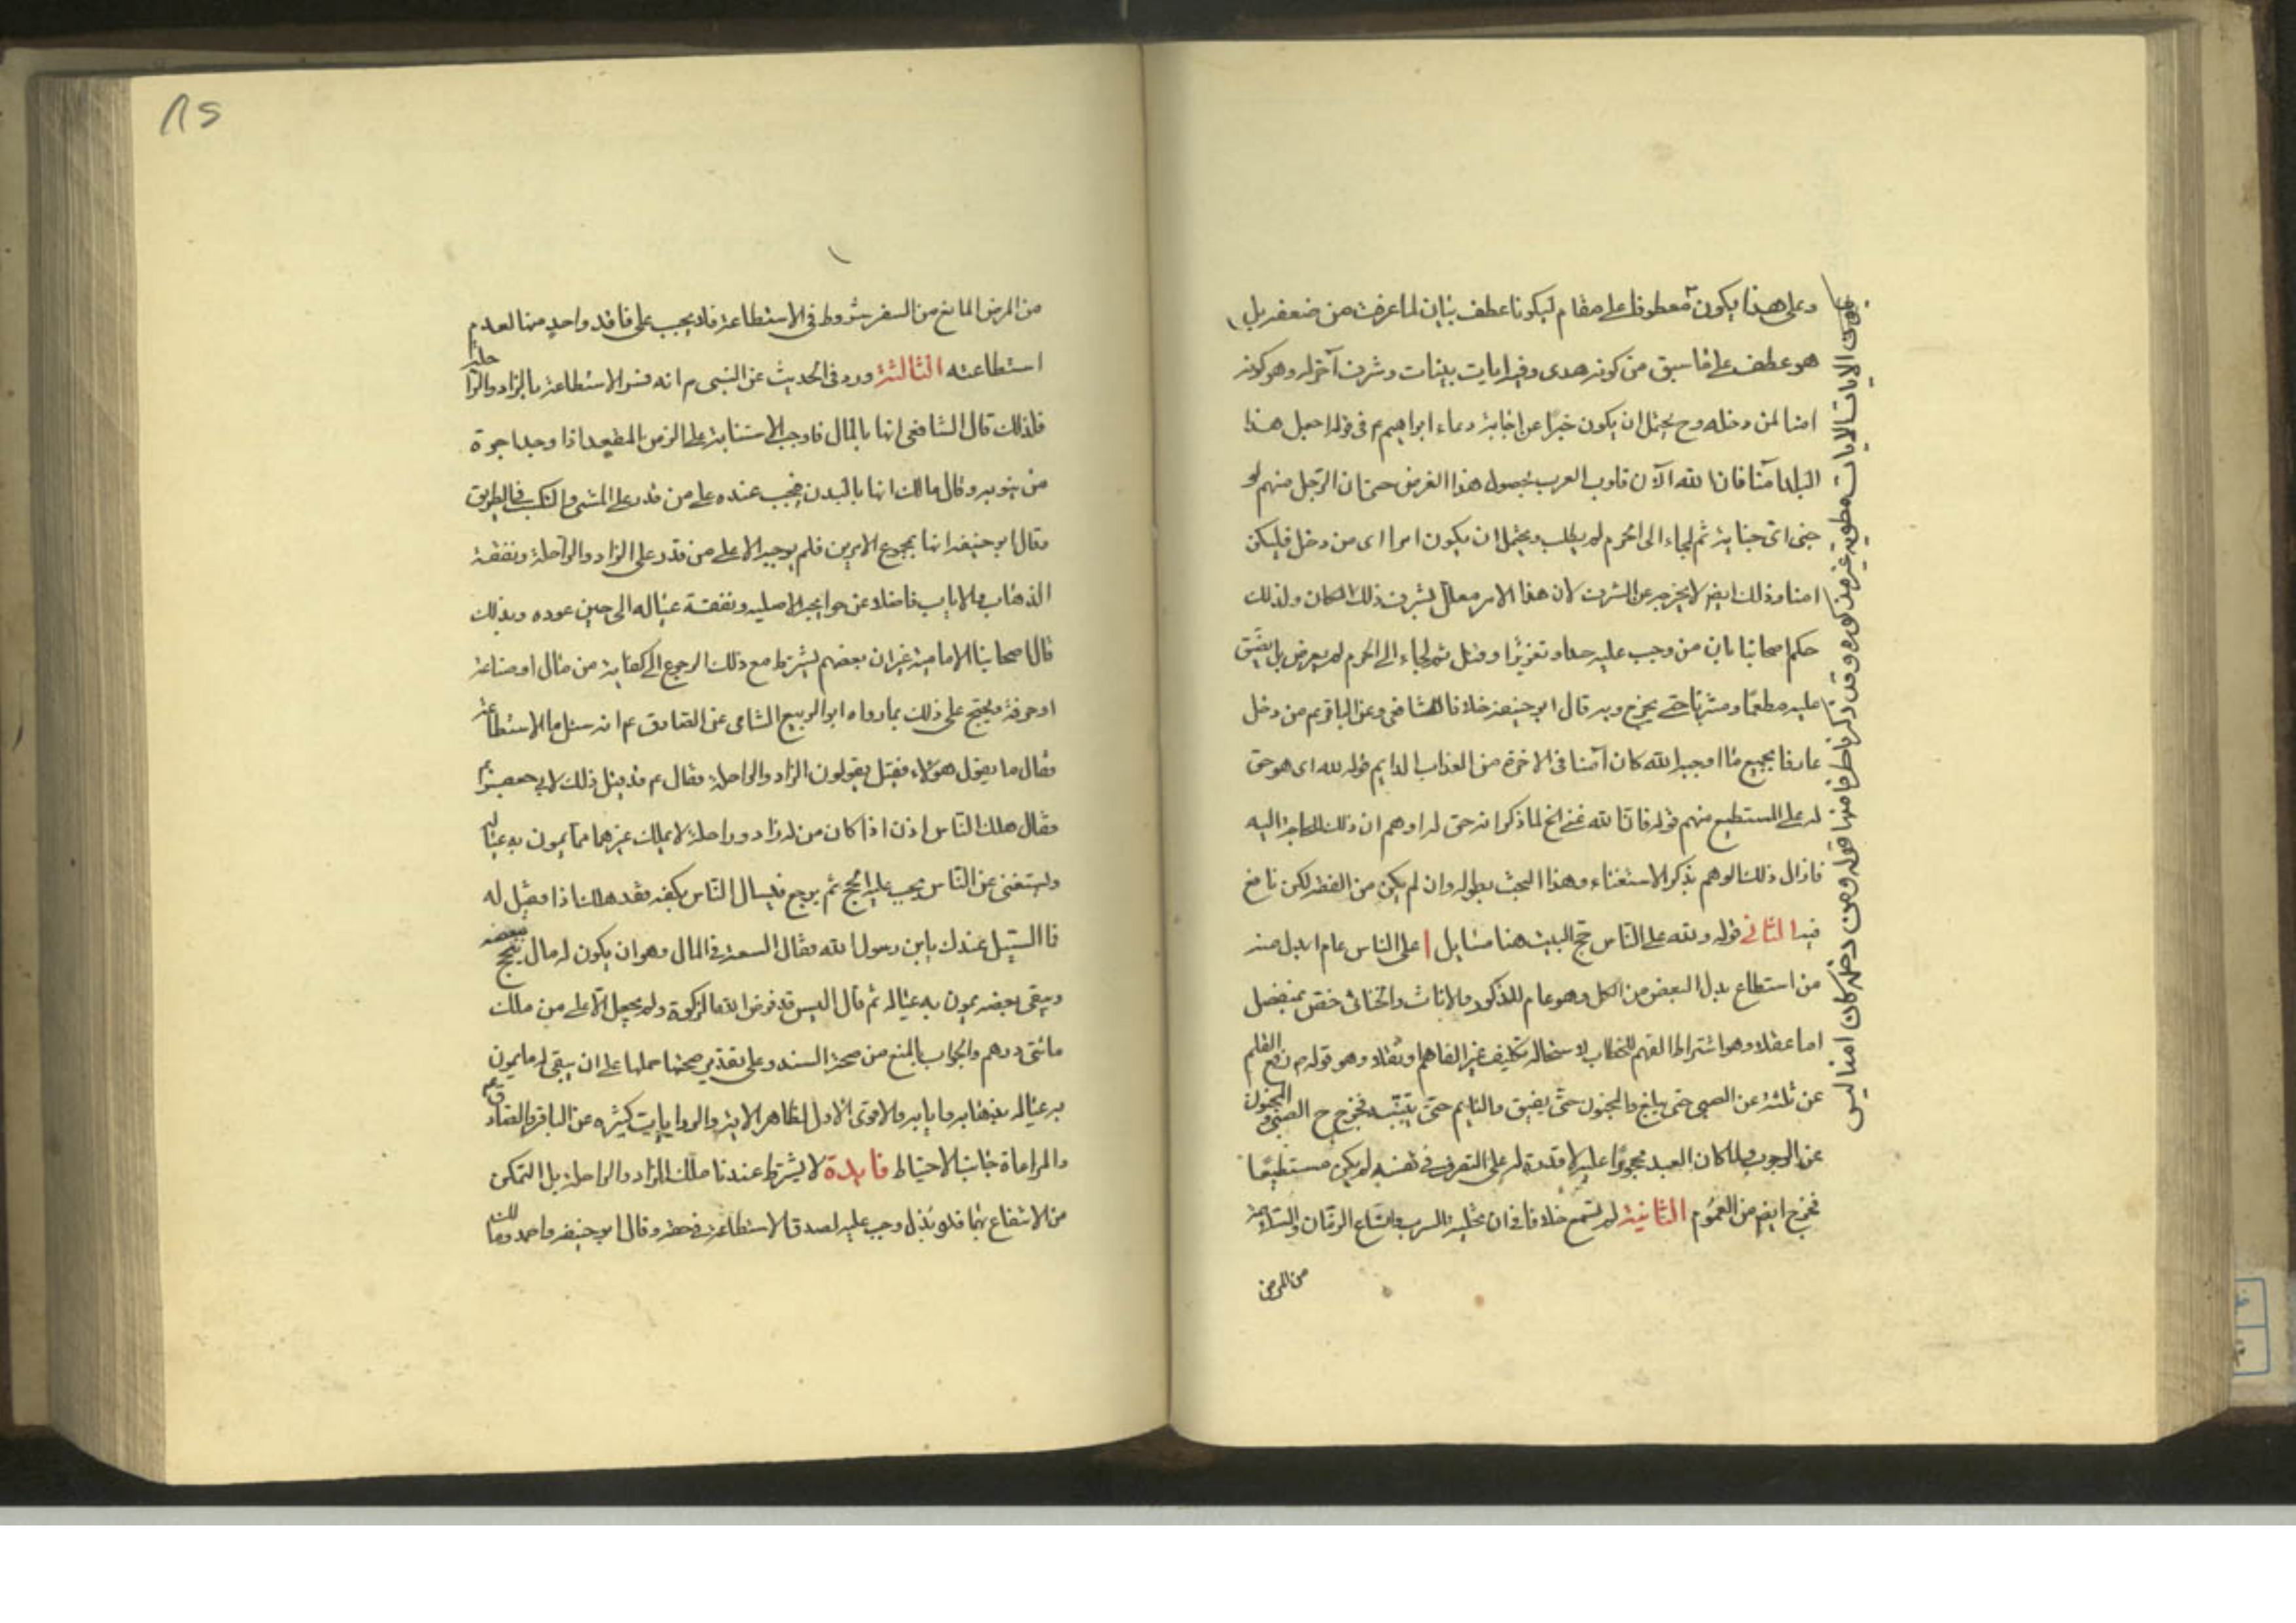 وعلى هذا يكون معطوفا على مقام ليكونا عطف بيان لما عرفت من ضعفه بل
هو عطف على ما سبق من كونه هدى وفيه ايات بينات وشرف آخر له وهو كونه
امنا لمن دخله وح يحتمل ان يكون خبرا عن اجابة دعاء ابراهيم ع فى قوله اجعل هذا
البلد آمنا فان الله الآن قلوب العرب بحصول هذا الغرض حتى ان الرجل منهم لو
جنى اى جناية ثم لجاء الى الحرم لم يطلب ويحتمل ان يكون امرا اى من دخل فليكن
امنا وذلك ايضا لا يخرجه عن الشرف لان هذا الامر معلل بشرف ذلك المكان ولذلك
حكم اصحابنا بان من وجب عليه حد او تعزيز او قتل ثم لجاء الى الحرم لم يعرض بل يضيق
عليه مطعما ومشربا حتى يخرج وبه قال ابو حنيفة خلافا للشافعى وعن الباقر ع من دخل
عارفا بجميع ما اوجبه الله كان آمنا فى الاخرة من العذاب الدايم قوله لله اى هو حق
له على المستطيع منهم قوله فان الله غنى الخ لما ذكر انه حق له اوهم ان ذلك لحاجة اليه
فازال ذلك الوهم بذكر الاستغناء وهذا البحث بطوله وان لم يكن من الفقه لكن نافع
فيه الثانى قوله ولله على الناس حج البيت هنا مسايل ا على الناس عام ابدل منه
من استطاع بدل البعض من الكل وهو عام للذكور والاناث والخناثى خص بمنفصل
اما عقلا وهو اشتراط الفهم للخطاب لاستحالة تكليف غير الفاهم او نقلا وهو قوله ص رفع القلم
عن ثلثة عن الصبى حتى يبلغ والمجنون حتى يفيق والنايم حتى يتنبه فخرج ح الصبى والمجنون
عن الوجوب ولما كان العبد محجورا عليه لا قدرة له على التصرف فى نفسه لم يكن مستطيعا
فخرج ايضا من العموم الثانية لم نسمع خلافا فى ان تخلية السرب واتساع الزمان والسلامة
من المرض
فى ان الايات مطوية غير مذكورة وقد ذكرنا طرفا منها قوله ومن دخله كان امنا ليس
١٨٥
من المرض المانع من السفر شروط فى الاستطاعة فلا يجب على فاقد واحد منها لعدم
استطاعته الثالثة ورد فى الحديث عن النبى ص انه فسر الاستطاعة بالزاد والراحلة
فلذلك قال الشافعى انها بالمال فاوجب الاستنابة على الزمن المقعد اذا وجد اجرة
من ينوبه وقال مالك انها بالبدن فيجب عنده على من قدر على المشى والكسب فى الطريق
وقال ابو حنيفه انها بمجموع الامرين فلم يوجبه الا على من قدر على الزاد والراحلة ونفقة
الذهاب والاياب فاضلا عن حوايجه الاصليه ونفقة عياله الى حين عوده وبذلك
قال اصحابنا الامامية غير ان بعضهم يشترط مع ذلك الرجوع الى كفاية من مال او صناعة
او حرفة ويحتج على ذلك بما رواه ابو الربيع الشامى عن الصادق ع انه سئل ما الاستطاعة
فقال ما يقول هؤلاء فقيل يقولون الزاد والراحلة فقال ع قد قيل ذلك لابى جعفر ع
فقال هلك الناس اذن اذا كان من له زاد وراحلة لا يملك غيرهما مما يمون به عياله
ويستغنى عن الناس يجب عليه الحج ثم يرجع فيسال الناس بكفه فقد هلك اذا فقيل له
فما السبيل عندك يابن رسول الله فقال السعة فى المال وهو ان يكون له مال يحج ببعضه
ويبقى بعضه يمون به عياله ثم قال اليس قد فرض الله الزكوة ولم يجعل الا على من ملك
مائتى درهم والجواب بالمنع من صحة السند وعلى تقدير صحتها حملها على ان يبقى له ما يمون
به عياله بذهابه وايابه والاقوى الاول لظاهر الاية والروايات كثيره عن الباقر والصادق ع
والمراعاة جانب الاحتياط فايدة لا يشترط عندنا ملك الزاد والراحلة بل التمكن
من الانتفاع بهما فلو بذل وجب عليه لصدق الاستطاعة فى حقه وقال ابو حنيفه واحمد ومالك